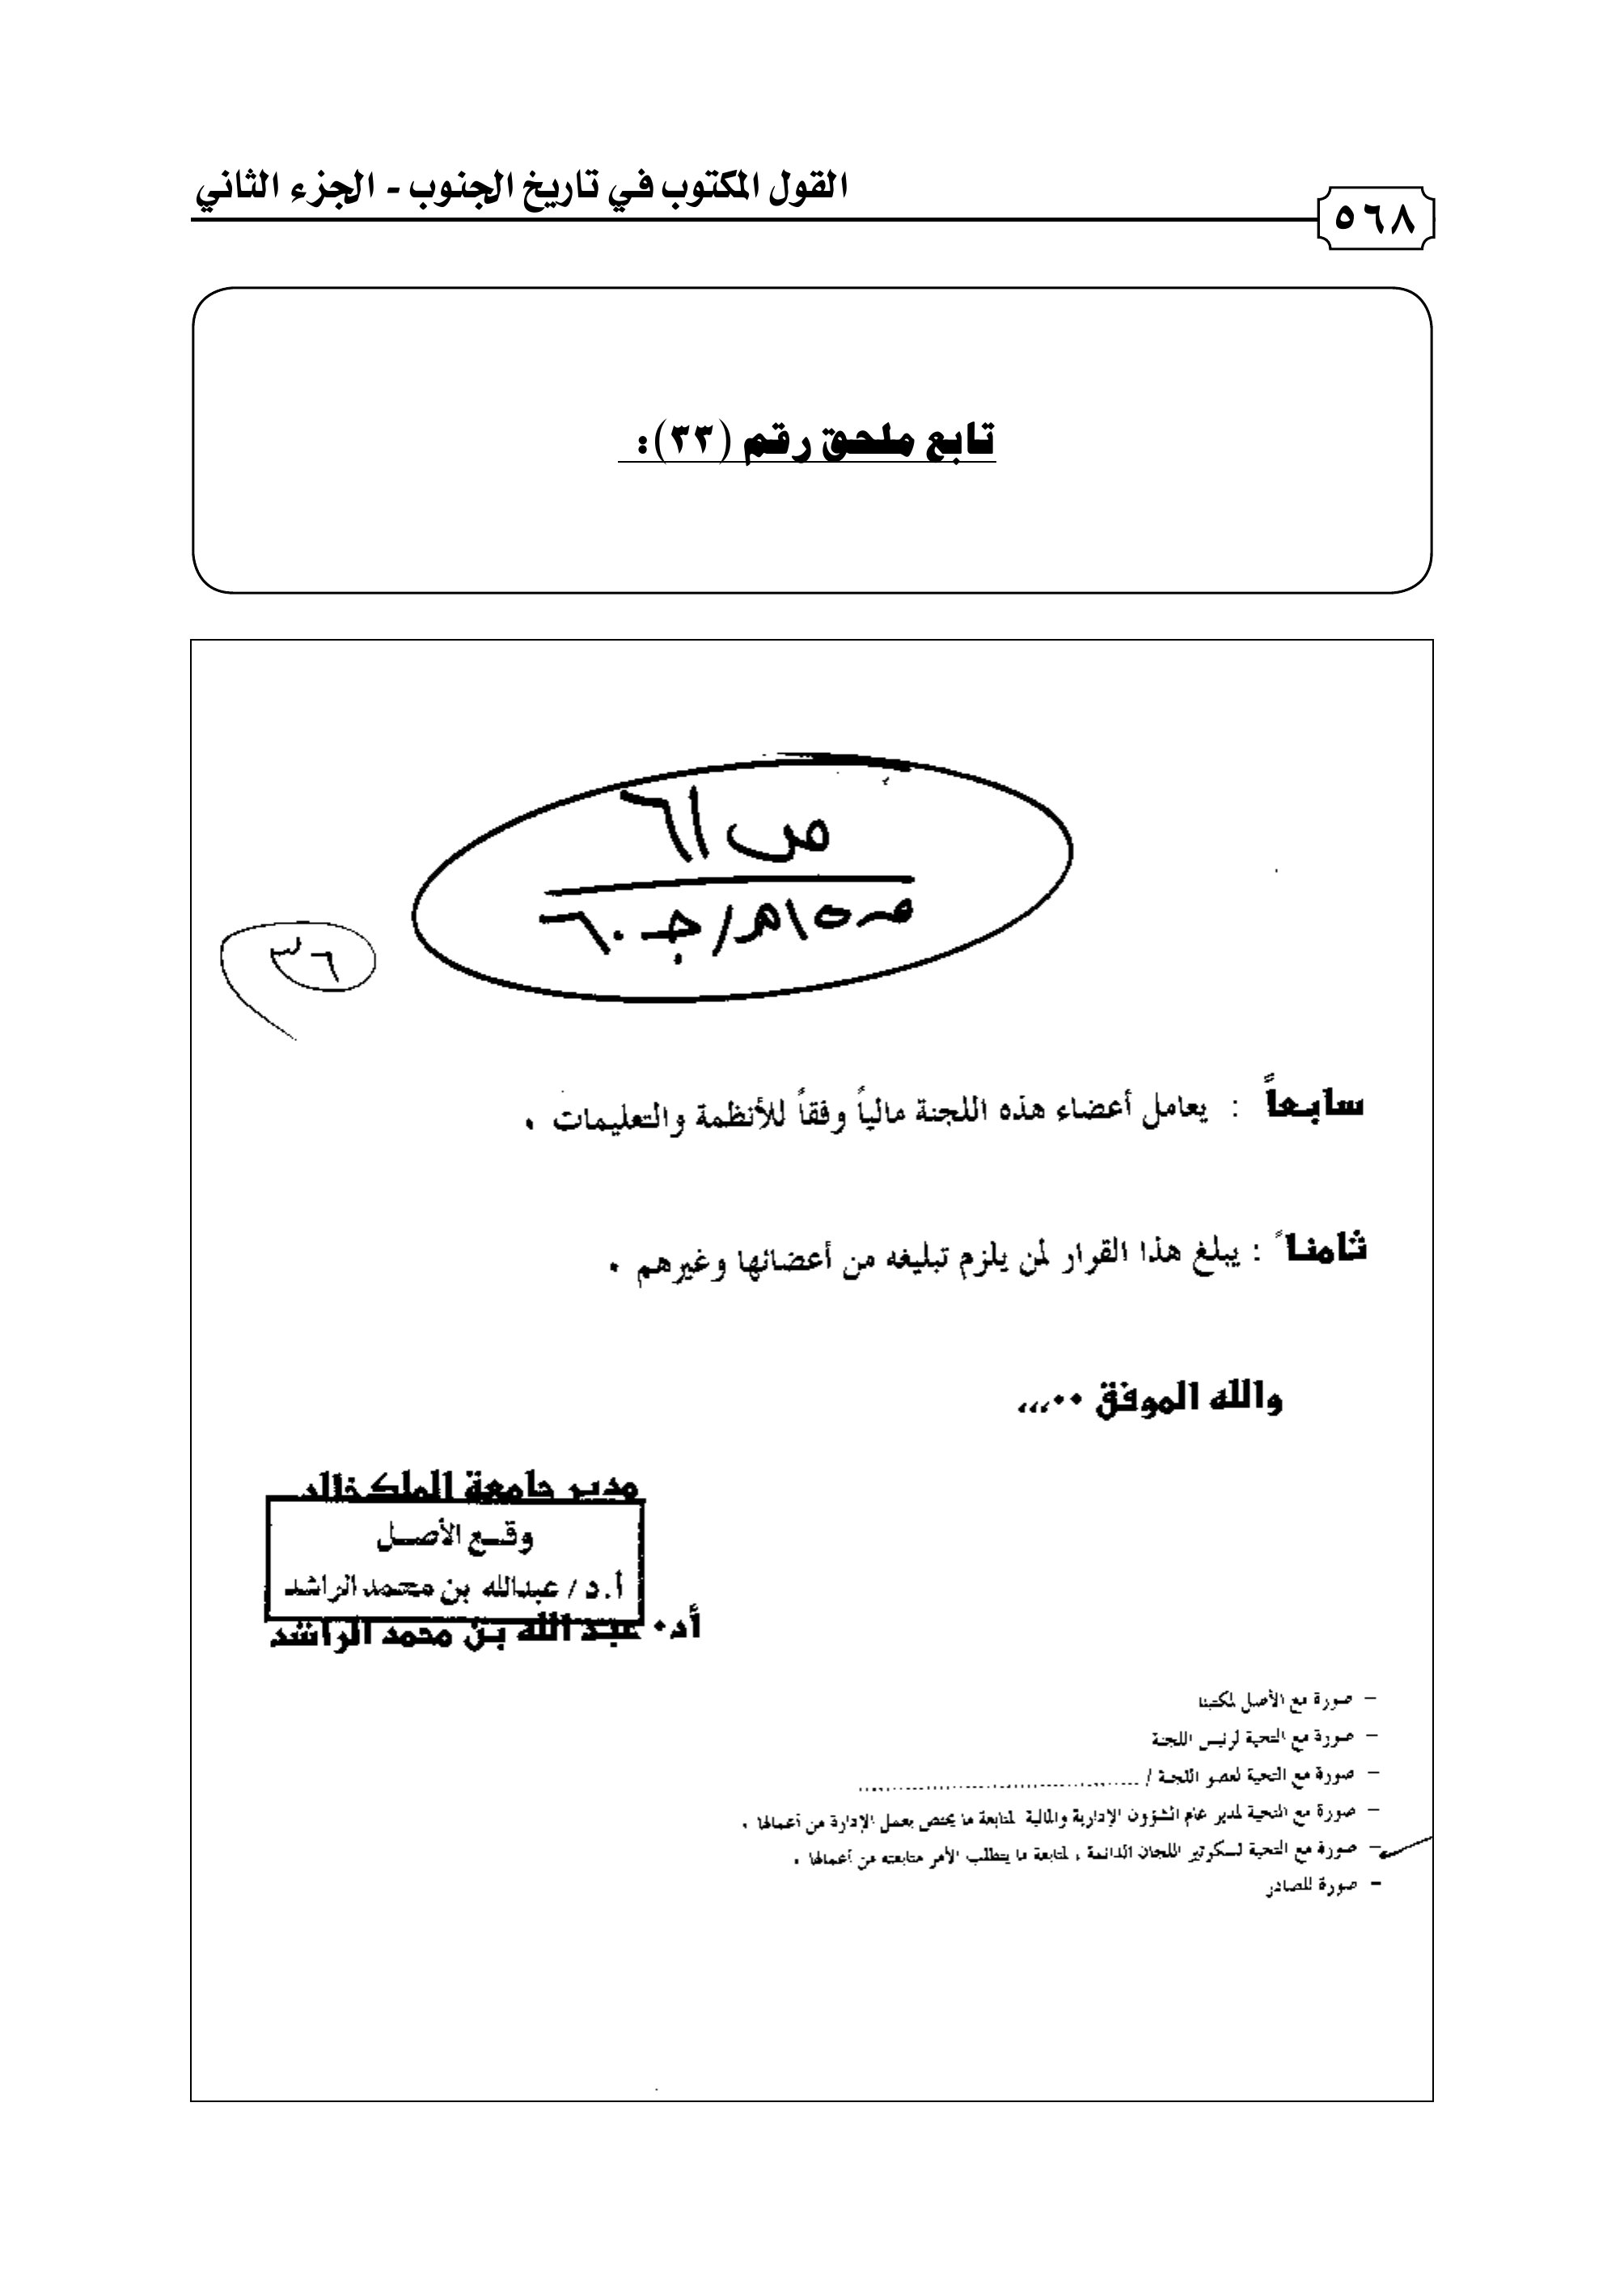 القول المكتوب في تاريخ الجنوب - الجزء الثاني
٥٦٨
تابع ملحق رقم (٣٣):
ص ٦١
سابعاً : يعامل أعضاء هذه اللجنة مالياً وفقاً للأنظمة والتعليمات .
ثامناً : يبلغ هذا القرار لمن يلزم تبليغه من أعضائها وغيرهم .
والله الموفق ..،،،
مدير جامعة الملك خالد
وقـع الأصـل
أ.د / عبدالله بن محمد الراشد
أد. عبد الله بن محمد الراشد
- صورة مع الأصل لمكتبنا
- صورة مع التحية لرئيس اللجنة
- صورة مع التحية لعضو اللجنة / ..............................
- صورة مع التحية لمدير عام الشؤون الإدارية والمالية لمتابعة ما يختص بعمل الإدارة من أعمالها .
- صورة مع التحية لسكرتير اللجان الدائمة ، لمتابعة ما يتطلب الأمر متابعته من أعمالها .
- صورة للصادر